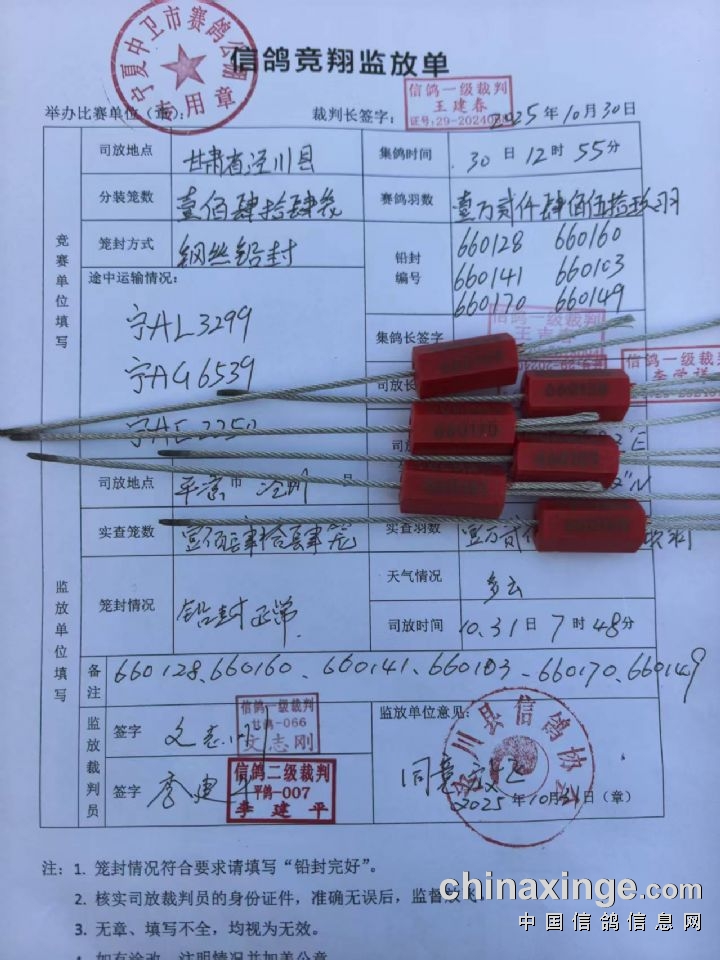 信鸽竞翔监放单
宁夏中卫市赛鸽公棚
专用章
举办比赛单位(章): 裁判长签字: 2025年10月30日
信鸽一级裁判
王建春
司放地点 甘肃省泾川县 集鸽时间 30日12时55分
分装笼数 壹佰肆拾肆笼 赛鸽羽数 壹万贰仟肆佰伍拾玖羽
竞赛单位填写
笼封方式 钢丝铅封 铅封编号 660128 660160
660141 660103
660170 660149
途中运输情况:
宁AL3299
宁AG6539
宁AE2250
集鸽长签字
信鸽一级裁判
司放长
信鸽一级裁判
660170
司放地点 平凉市 泾川
实查笼数 壹佰肆拾肆笼 实查羽数 壹万贰
监放单位填写
笼封情况 铅封正常 天气情况 多云
司放时间 10.31日7时48分
备注 660128、660160、660141、660103、660170、660149
监放裁判员
签字 文志刚
信鸽一级裁判
甘鸽-066
文志刚
签字 李建平
信鸽二级裁判
平鸽-007
李建平
监放单位意见:
同意放飞
川县信鸽协会
2025年10月31日(章)
注:1. 笼封情况符合要求请填写“铅封完好”。
2. 核实司放裁判员的身份证件,准确无误后,监督放飞
3. 无章、填写不全,均视为无效。
4. 如有涂改,注明情况并加盖公章
chinaxinge.com
中国信鸽信息网